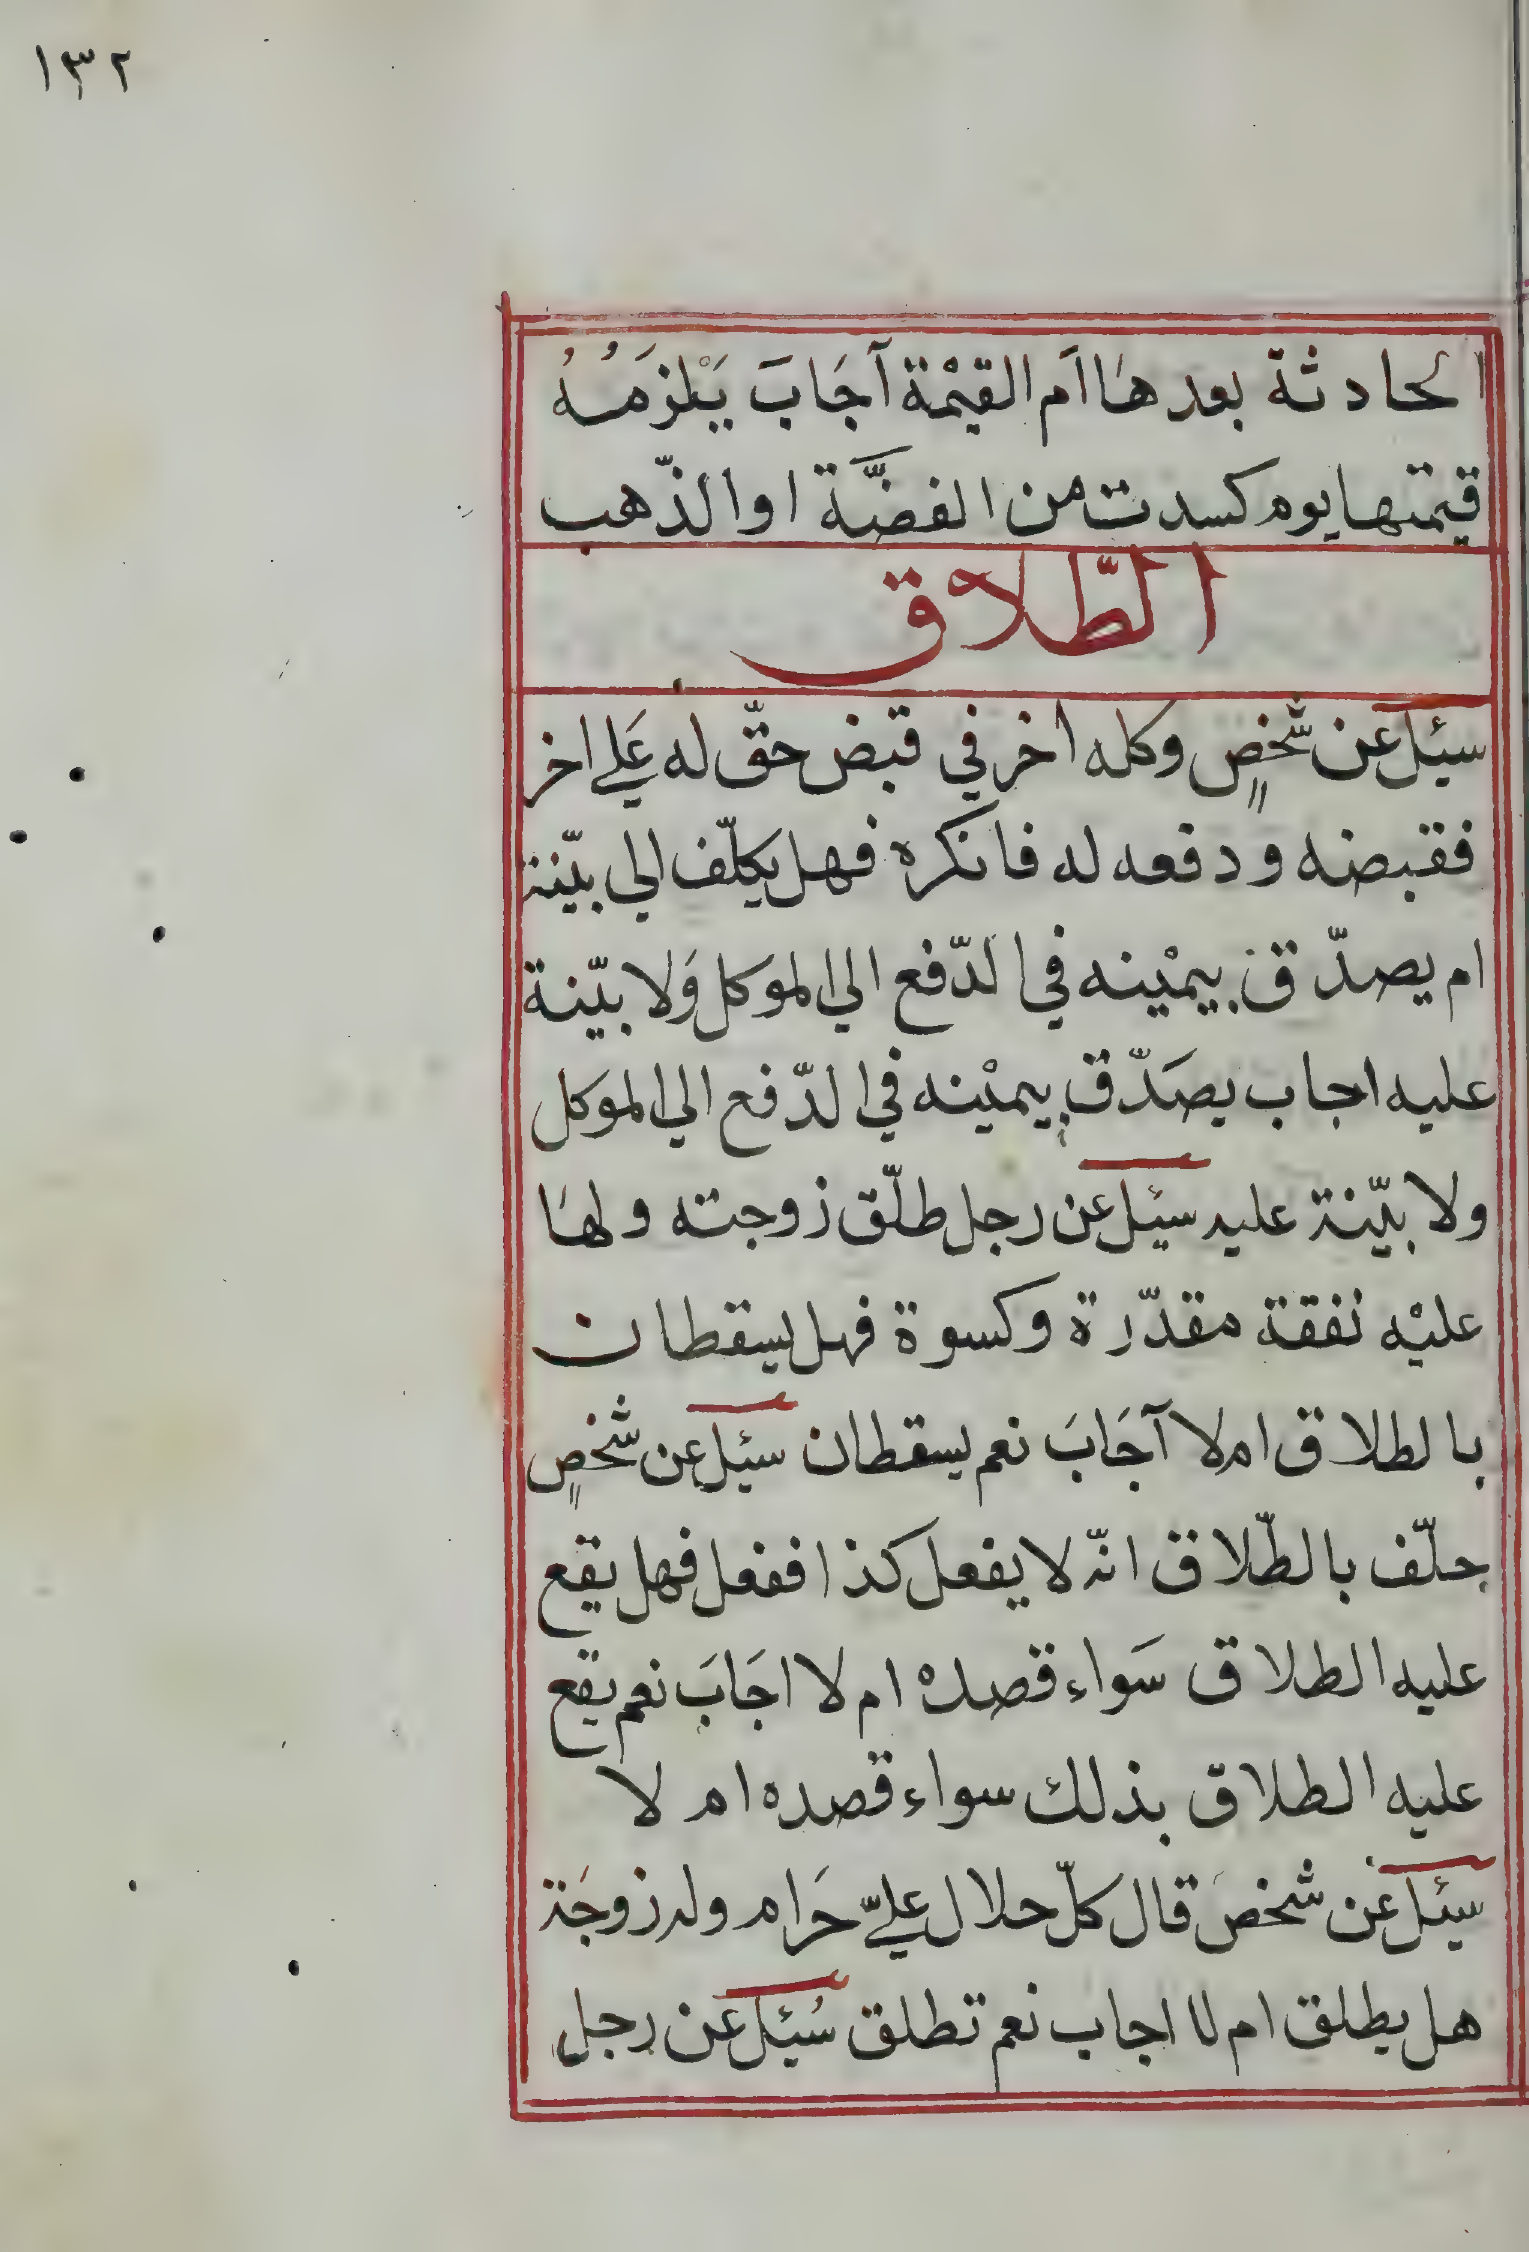 ١٣٢
الحادثة بعدهَا اَم القيْمة آجَابَ يَلْزَمُهُ
قيمتها يوم كسدت من الفضَّة او الذّهب
الطّلاق
سئل عن شّخصٍ وكله اخر في قبض حقّ له عَلي اخر
فقبضه ودفعه له فانكره فهل يكلّف الي بيّنة
ام يصدّق بيميْنه في الدّفع الي الموكل وَلا بيّنة
عليه اجاب يصَدّق بيميْنه في الدّفع الي الموكل
ولا بيّنة عليه سئل عن رجل طلّق زوجته ولهَا
عليْه نفقة مقدّرة وكسوة فهل يسقطان
بالطلاق ام لا آجَابَ نعم يسقطان سئل عن شخصٍ
حلّف بالطّلاق انّه لا يفعل كذا ففعل فهل يقع
عليه الطلاق سَواء قصده ام لا اجَابَ نعم يقع
عليه الطلاق بذلك سواء قصده ام لا
سئل عن شخصَ قال كلّ حلال عليّ حَرام وله زوجَة
هل يطلق ام لا اجاب نعم تطلق سُئل عن رجل